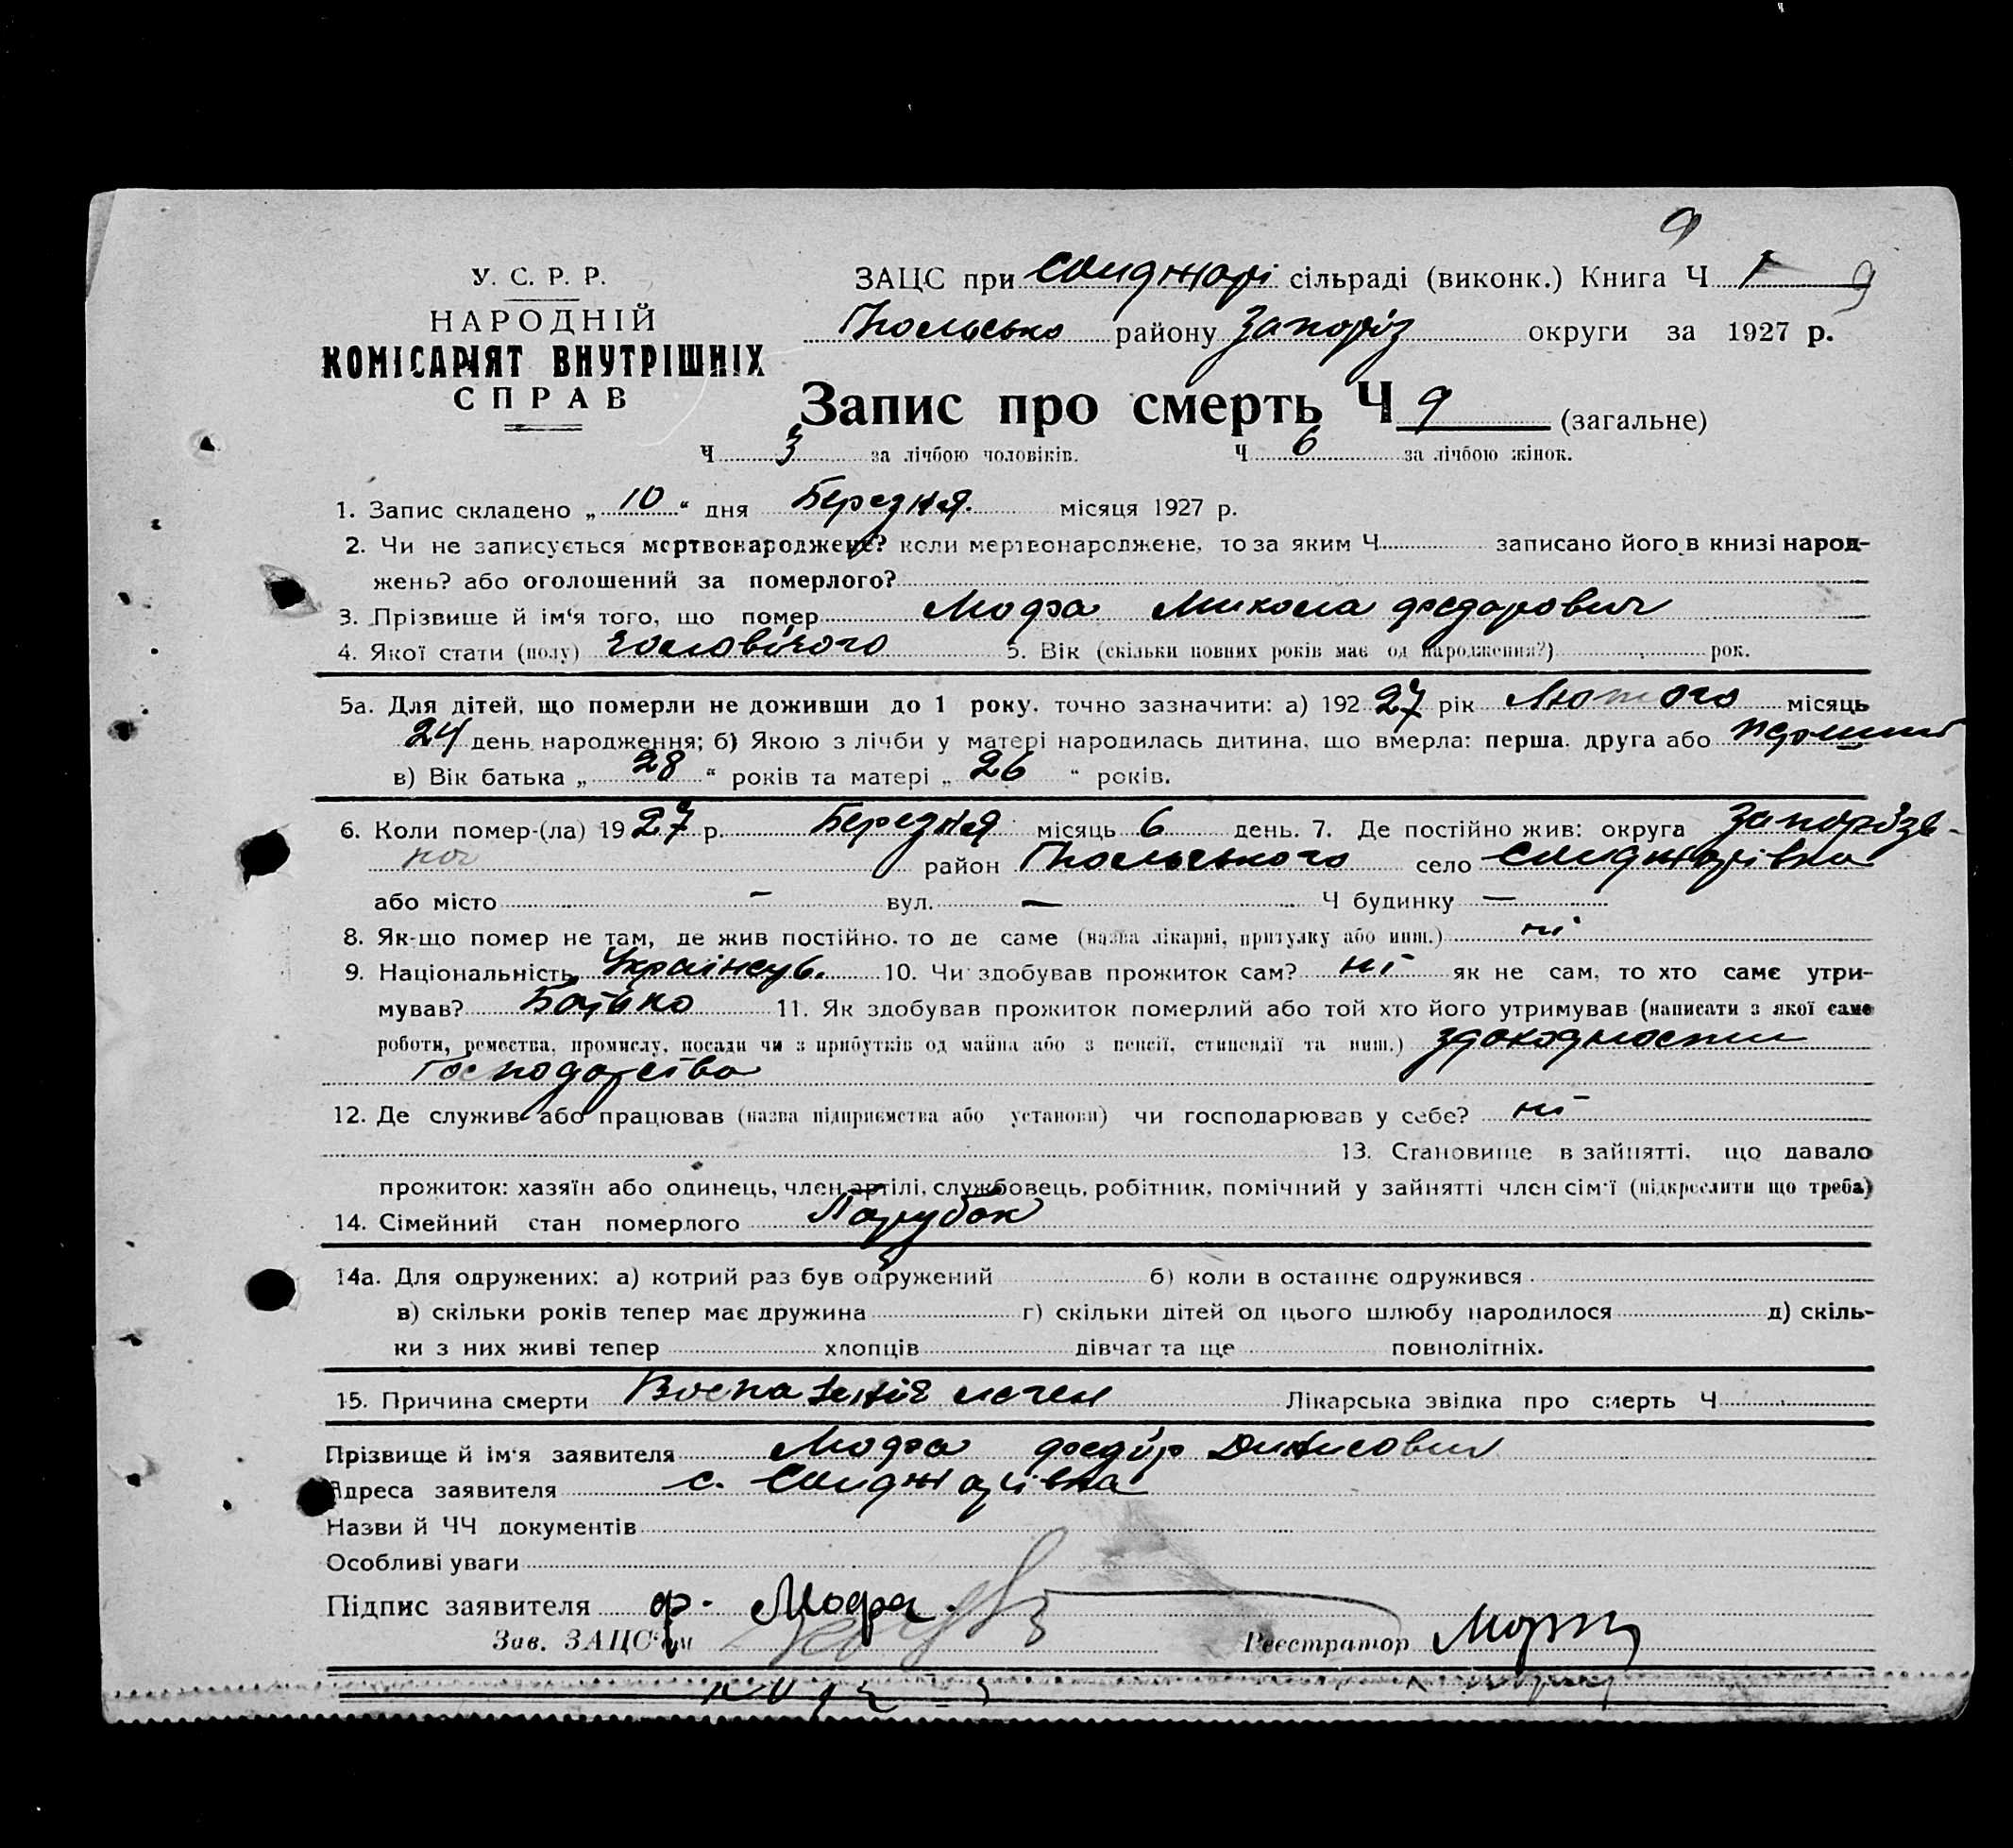 9
У. С. Р. Р.
НАРОДНІЙ
КОМІСАРІЯТ ВНУТРІШНІХ
СПРАВ
ЗАЦС при Санджарі сільраді (виконк.) Книга Ч 1 9
району Запоріз округи за 1927 р.
Запис про смерть Ч 9 (загальне)
Ч 3 за лічбою чоловіків. Ч 6 за лічбою жінок.
1. Запис складено „ 10 “ дня Березня. місяця 1927 р.
2. Чи не записується мертвонароджене? коли мертвонароджене, то за яким Ч записано його в книзі народ-
жень? або оголошений за померлого?
3. Прізвище й ім‘я того, що помер Модра Микола Федорович
4. Якої стати (полу) чоловічого 5. Вік (скільки повних років має од народження?) рок.
5а. Для дітей, що померли не доживши до 1 року, точно зазначити: а) 192 27 рік Лютого місяць
24 день народження; б) Якою з лічби у матері народилась дитина, що вмерла: перша. друга або
в) Вік батька „ 28 “ років та матері „ 26 “ років.
6. Коли помер-(ла) 19 27 р. Березня місяць 6 день. 7. Де постійно жив: округа Запорізь-
кої район село Санджарівка
або місто – вул. — Ч будинку —
8. Як-що помер не там, де жив постійно, то де саме (назва лікарні, притулку або инш.) ні
9. Національність Українець. 10. Чи здобував прожиток сам? ні як не сам, то хто саме утри-
мував? Батько 11. Як здобував прожиток померлий або той хто його утримував (написати з якої саме
роботи, ремества, промислу, посади чи з прибутків од майна або з пенсії, стипендії та инш.) здоходности
Господарства
12. Де служив або працював (назва підприємства або установи) чи господарював у себе? ні
13. Становище в зайнятті, що давало
прожиток: хазяїн або одинець, член артілі, службовець, робітник, помічний у зайнятті член сім‘ї (підкреслити що треба)
14. Сімейний стан померлого Парубок
14а. Для одружених: а) котрий раз був одружений б) коли в останнє одружився
в) скільки років тепер має дружина г) скільки дітей од цього шлюбу народилося д) скіль-
ки з них живі тепер хлопців дівчат та ще повнолітніх.
15. Причина смерти Воспаленія леген Лікарська звідка про смерть Ч
Прізвище й ім‘я заявителя Модра Федір Денисович
Адреса заявителя с. Санджарівка
Назви й ЧЧ документів
Особливі уваги
Підпис заявителя Ф. Модра.
Зав. ЗАЦС‘ом Реєстратор